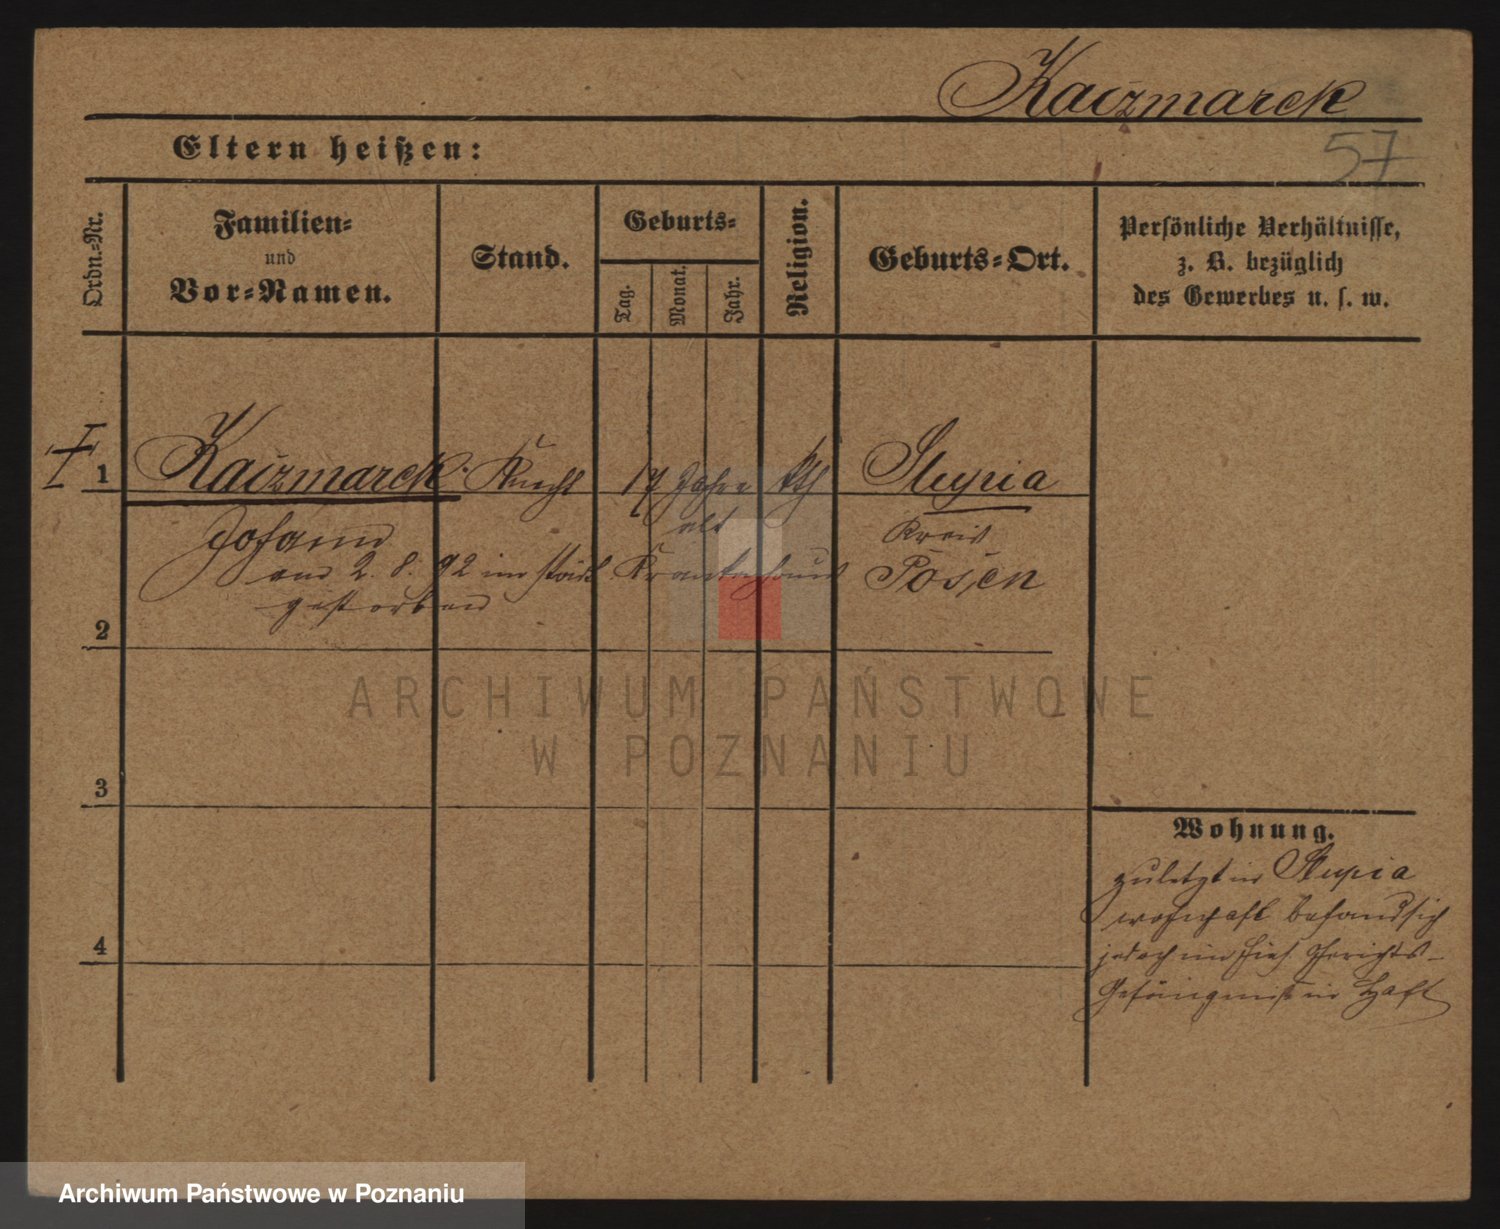 Kaczmarek
57
Eltern heißen:
Ordn.-Nr.
Familien-
und
Vor-Namen.
Stand.
Geburts-
Tag.
Monat.
Jahr.
Religion.
Geburts-Ort.
Persönliche Verhältnisse,
z. B. bezüglich
des Gewerbes u. s. w.
1 Kaczmarek. Knecht 17 Jahre kth Slupia
Johann alt Kreis
am 2. 8. 92 im städt. Krankenhaus Posen
gestorben
2
3
4
Wohnung.
zuletzt in Slupia
wohnhaft befand sich
jedoch im hies. Gerichts-
Gefängniß in Haft
ARCHIWUM PAŃSTWOWE
W POZNANIU
Archiwum Państwowe w Poznaniu